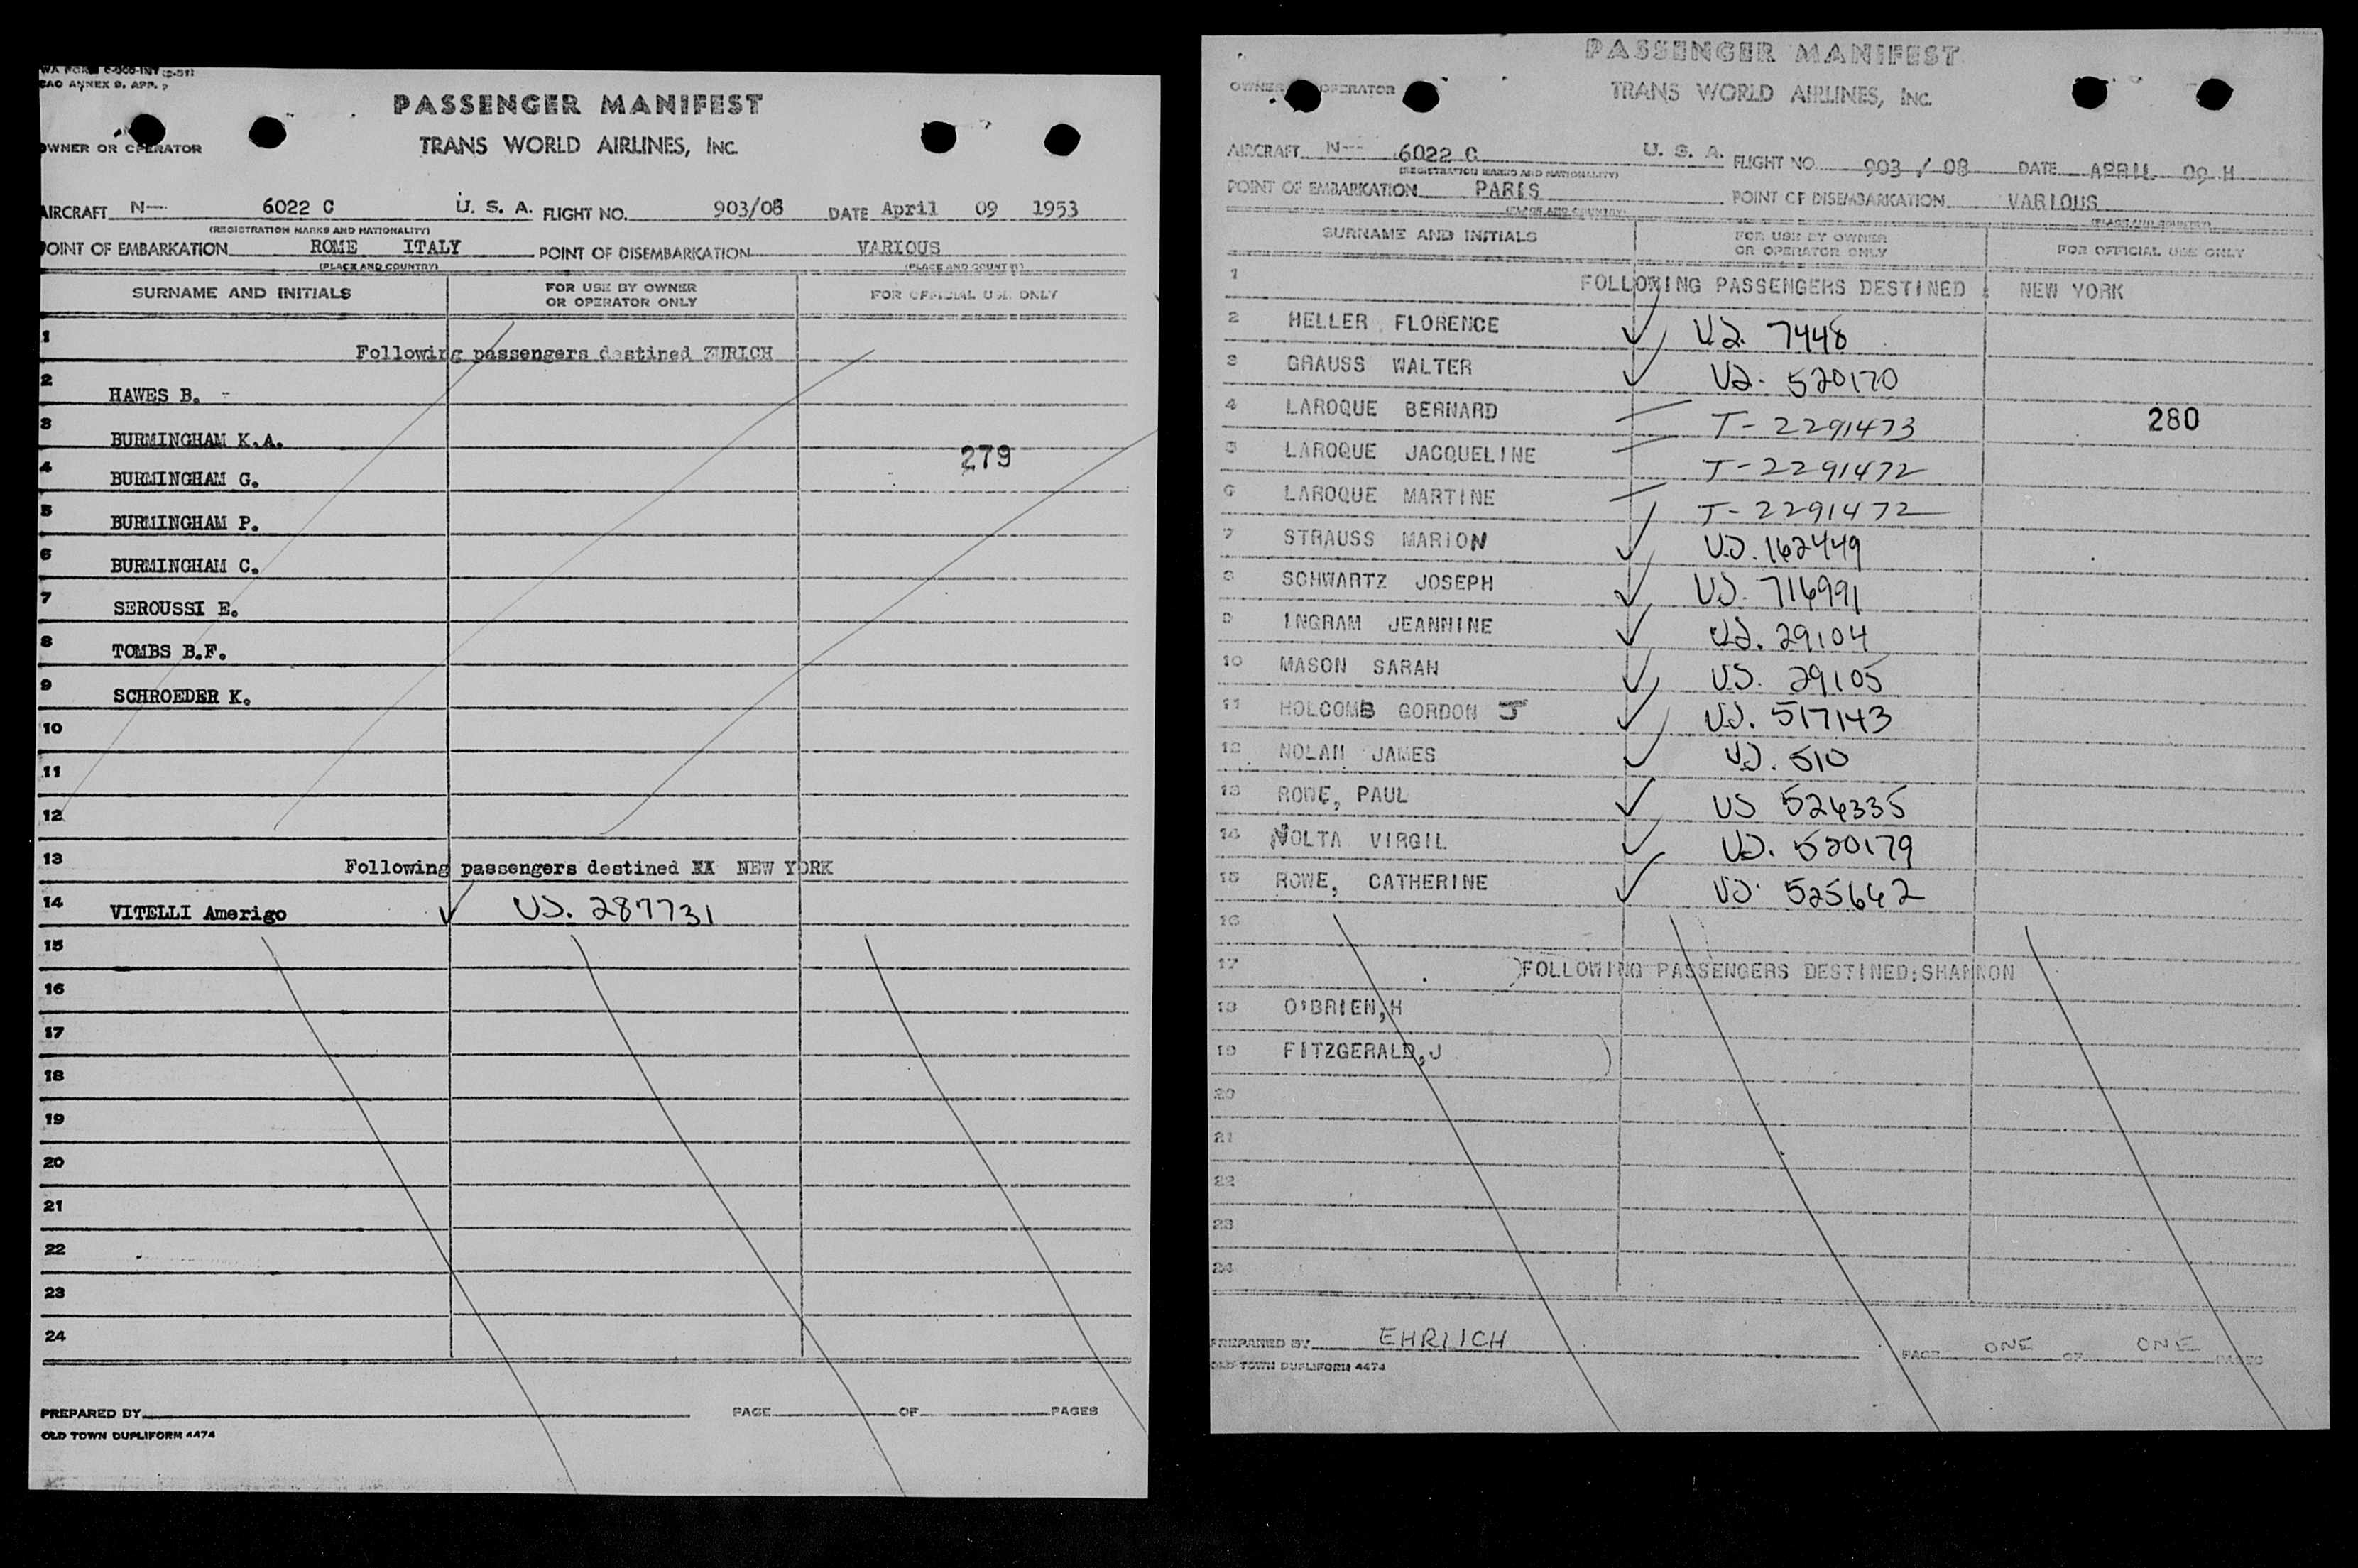 WA FORM C-000-INT (2-51)
CAO ANNEX 9. APP.
PASSENGER MANIFEST
OWNER OR OPERATOR
TRANS WORLD AIRLINES, INC.
AIRCRAFT N-- 6022 C U. S. A. FLIGHT NO. 903/08 DATE April 09 1953
(REGISTRATION MARKS AND NATIONALITY)
POINT OF EMBARKATION ROME ITALY POINT OF DISEMBARKATION VARIOUS
(PLACE AND COUNTRY) (PLACE AND COUNTRY)
SURNAME AND INITIALS FOR USE BY OWNER OR OPERATOR ONLY FOR OFFICIAL USE ONLY
1 Following passengers destined ZURICH
2 HAWES B. -
3 BURMINGHAM K.A.
279
4 BURMINGHAM G.
5 BURMINGHAM P.
6 BURMINGHAM C.
7 SEROUSSI E.
8 TOMBS B.F.
9 SCHROEDER K.
10
11
12
13 Following passengers destined NEW YORK
14 VITELLI Amerigo ✓ US. 287731
15
16
17
18
19
20
21
22
23
24
PREPARED BY PAGE OF PAGES
OLD TOWN DUPLIFORM 4474
PASSENGER MANIFEST
OWNER OPERATOR
TRANS WORLD AIRLINES, INC.
AIRCRAFT N-- 6022 C U. S. A. FLIGHT NO. 903 / 08 DATE APRIL 09 H
(REGISTRATION MARKS AND NATIONALITY)
POINT OF EMBARKATION PARIS POINT OF DISEMBARKATION VARIOUS
(PLACE AND COUNTRY) (PLACE AND COUNTRY)
SURNAME AND INITIALS FOR USE BY OWNER OR OPERATOR ONLY FOR OFFICIAL USE ONLY
1 FOLLOWING PASSENGERS DESTINED : NEW YORK
2 HELLER FLORENCE ✓ US. 7448
3 GRAUSS WALTER ✓ US. 520170
4 LAROQUE BERNARD — T-2291473 280
5 LAROQUE JACQUELINE — T-2291472
6 LAROQUE MARTINE — T-2291472
7 STRAUSS MARION ✓ US. 162449
8 SCHWARTZ JOSEPH ✓ US. 716991
9 INGRAM JEANNINE ✓ US. 29104
10 MASON SARAH ✓ US. 29105
11 HOLCOMB GORDON J ✓ US. 517143
12 NOLAN JAMES ✓ US. 510
13 ROWE, PAUL ✓ US 526335
14 NOLTA VIRGIL ✓ US. 520179
15 ROWE, CATHERINE ✓ US. 525642
16
17 FOLLOWING PASSENGERS DESTINED:SHANNON
18 O'BRIEN,H
19 FITZGERALD,J
20
21
22
23
24
PREPARED BY EHRLICH PAGE ONE OF ONE PAGES
OLD TOWN DUPLIFORM 4474